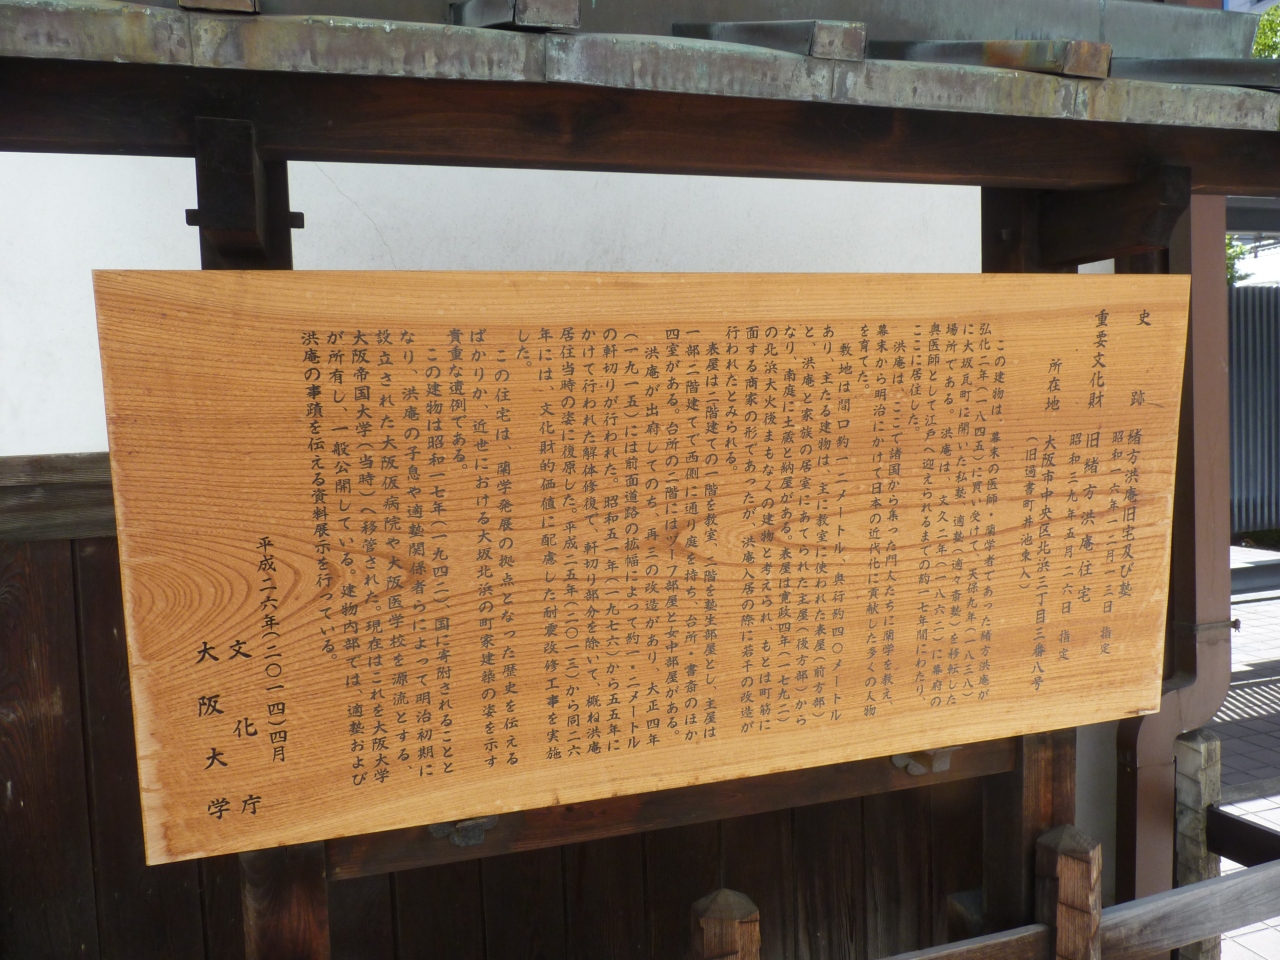 史跡 緒方洪庵旧宅及び塾
昭和一六年一二月一三日 指定
重要文化財 旧緒方洪庵住宅
昭和三九年五月二六日 指定
所在地 大阪市中央区北浜三丁目三番八号
(旧過書町井池東入)
この建物は、幕末の医師・蘭学者であった緒方洪庵が
弘化二年(一八四五)に買い受けて、天保九年(一八三八)
に大坂瓦町に開いた私塾 適塾(適々斎塾)を移転した
場所である。洪庵は、文久二年(一八六二)に幕府の
奥医師として江戸へ迎えられるまでの約一七年間にわたり、
ここに居住した。
洪庵は、ここで諸国から集った門人たちに蘭学を教え、
幕末から明治にかけて日本の近代化に貢献した多くの人物
を育てた。
敷地は間口約一二メートル、奥行約四〇メートル
あり、主たる建物は、主に教室に使われた表屋(前方部)
と、洪庵と家族の居室にあてられた主屋(後方部)から
なり、南庭に土蔵と納屋がある。表屋は寛政四年(一七九二)
の北浜大火後まもなくの建物と考えられ、もとは町筋に
面する商家の形であったが、洪庵入居の際に若干の改造が
行われたとみられる。
表屋は二階建ての一階を教室、二階を塾生部屋とし、主屋は
一部二階建てで西側に通り庭を持ち、台所・書斎のほか
四室がある。台所の二階にはヅーフ部屋と女中部屋がある。
洪庵が出府してのち、再三の改造があり、大正四年
(一九一五)には前面道路の拡幅によって約一・二メートル
の軒切りが行われた。昭和五一年(一九七六)から五五年に
かけて行われた解体修復で、軒切り部分を除いて、概ね洪庵
居住当時の姿に復原した。平成二五年(二〇一三)から同二六
年には、文化財的価値に配慮した耐震改修工事を実施
した。
この住宅は、蘭学発展の拠点となった歴史を伝える
ばかりか、近世における大坂北浜の町家建築の姿を示す
貴重な遺例である。
この建物は昭和一七年(一九四二)国に寄附されることと
なり、洪庵の子息や適塾関係者らによって明治初期に
設立された大阪仮病院や大阪医学校を源流とする、
大阪帝国大学(当時)へ移管された。現在はこれを大阪大学
が所有し、一般公開している。建物内部では、適塾および
洪庵の事蹟を伝える資料展示を行っている。
平成二六年(二〇一四)四月
文化庁
大阪大学